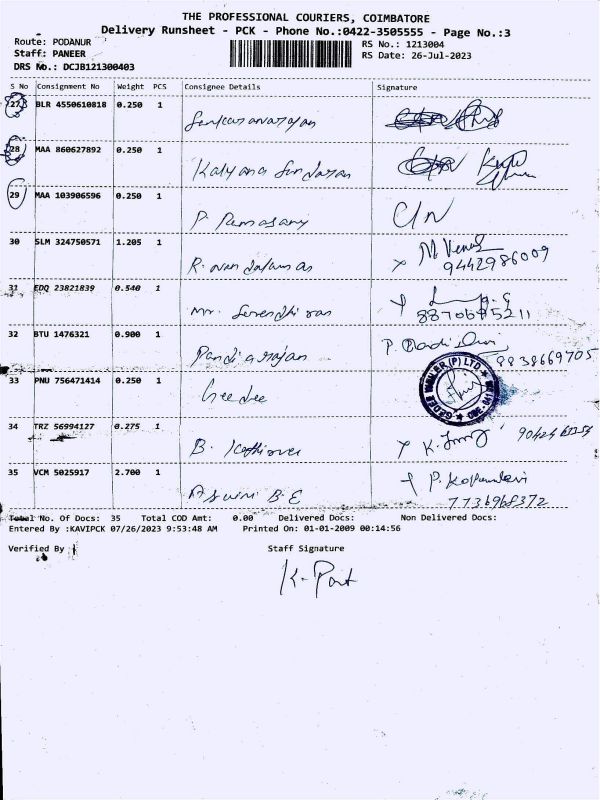 THE PROFESSIONAL COURIERS, COIMBATORE
Delivery Runsheet - PCK - Phone No.:0422-3505555 - Page No.:3
Route: PODANUR
RS No.: 1213004
Staff: PANEER
RS Date: 26-Jul-2023
DRS No.: DCJB121300403
S No Consignment No Weight PCS Consignee Details Signature
27 BLR 4550610818 0.250 1
28 MAA 860627892 0.250 1 Kalyana Sundaram
29 MAA 103906596 0.250 1 P. Ramasamy
30 SLM 324750571 1.205 1 R.
9442986009
31 EDQ 23821839 0.540 1 Mr.
32 BTU 1476321 0.900 1 Pandiarajan P.
9838669705
33 PNU 756471414 0.250 1 Geedee
34 TRZ 56994127 0.275 1 B. K.
35 VCM 5025917 2.700 1 Aswin B.E P.
Total No. Of Docs: 35 Total COD Amt: 0.00 Delivered Docs: Non Delivered Docs:
Entered By :KAVIPCK 07/26/2023 9:53:48 AM Printed On: 01-01-2009 00:14:56
Verified By : Staff Signature